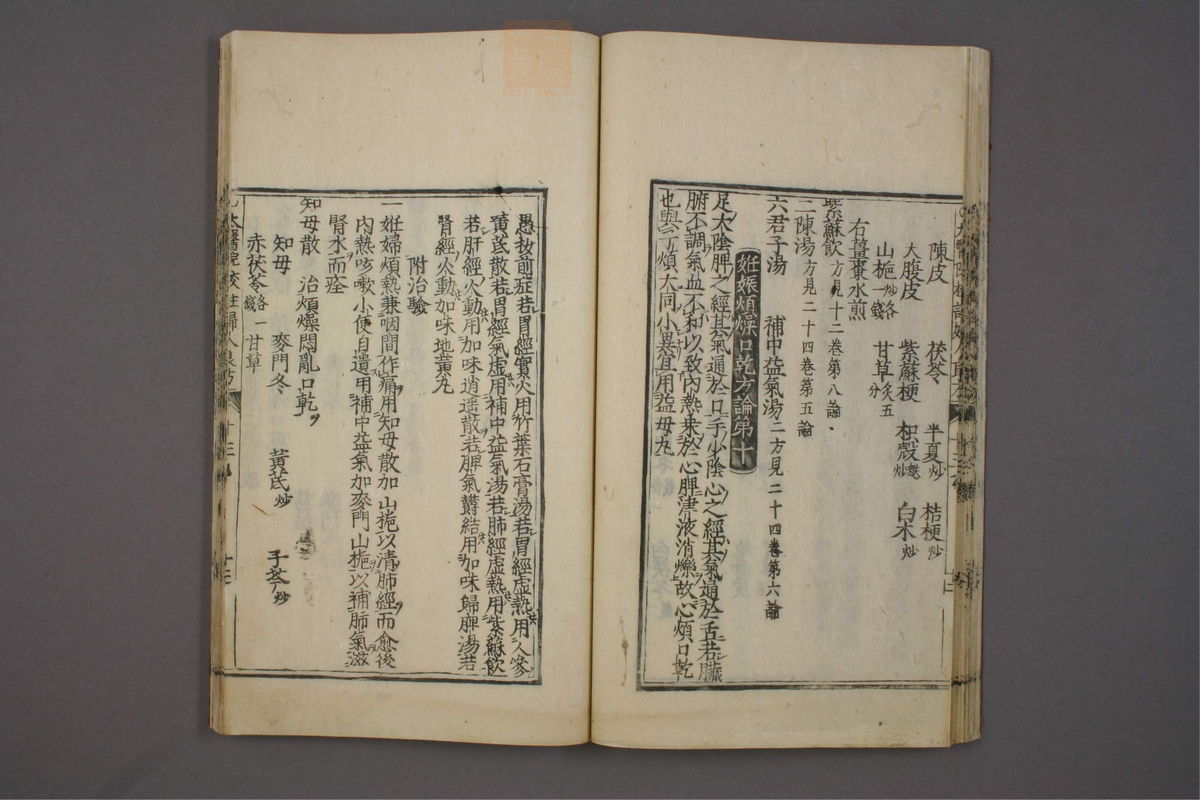 陳皮 茯苓 半夏炒 桔梗炒
大腹皮 紫蘇梗 枳殼麩炒 白朮炒
山梔炒各一錢 甘草炙五分
右薑棗水煎
紫蘇飲方見十二卷第八論
二陳湯方見二十四卷第五論
六君子湯 補中益氣湯二方見二十四卷第六論
妊娠煩燥口乾方論第十
足太陰脾之經其氣通於口手少陰心之經其氣通於舌若臟
腑不調氣血不和以致內熱乘於心脾津液消爍故心煩口乾
也與子煩大同小異宜用益母丸
愚按前症若胃經實火用竹葉石膏湯若胃經虛熱用人參
黃芪散若胃經氣虛用補中益氣湯若肺經虛熱用紫蘇飲
若肝經火動用加味逍遙散若脾氣鬱結用加味歸脾湯若
腎經火動加味地黃丸
附治驗
一妊婦煩熱兼咽間作痛用知母散加山梔以清肺經而愈後
內熱咳嗽小便自遺用補中益氣加麥門山梔以補肺氣滋
腎水而痊
知母散 治煩燥悶亂口乾
知母 麥門冬 黃芪炒 子芩炒
赤茯苓各一錢 甘草
太醫院校註婦人良方 十三